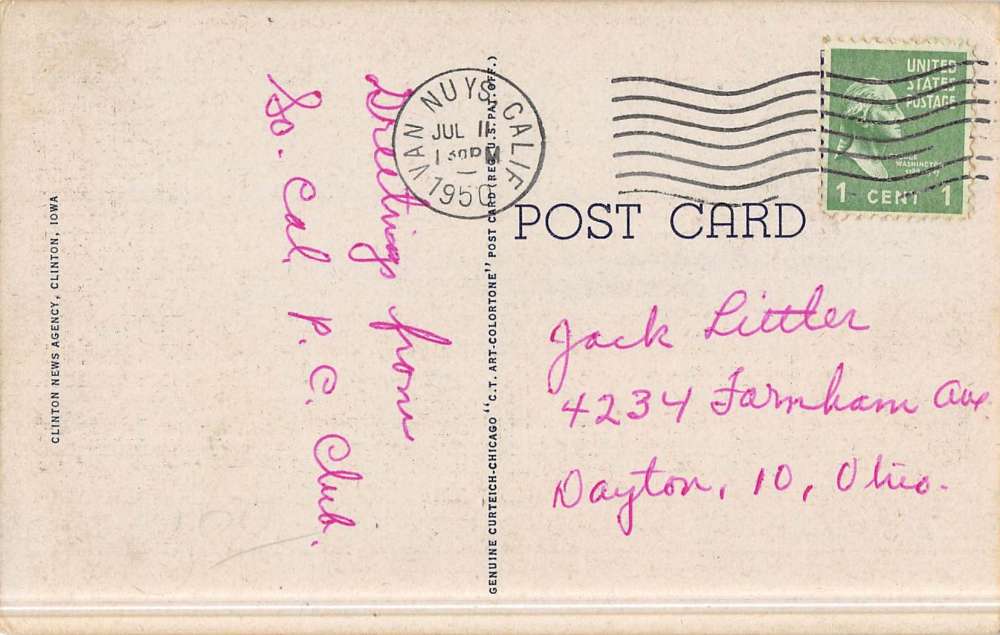 CLINTON NEWS AGENCY, CLINTON, IOWA
Greetings from
So. Cal. P. C. Club.
GENUINE CURTEICH-CHICAGO "C.T. ART-COLORTONE" POST CARD (REG. U.S. PAT. OFF.)
VAN NUYS, CALIF.
JUL 11
1 30 PM
1950
UNITED
STATES
POSTAGE
WASHINGTON
1 CENT 1
POST CARD
Jack Littler
4234 Farnham Ave
Dayton, 10, Ohio.